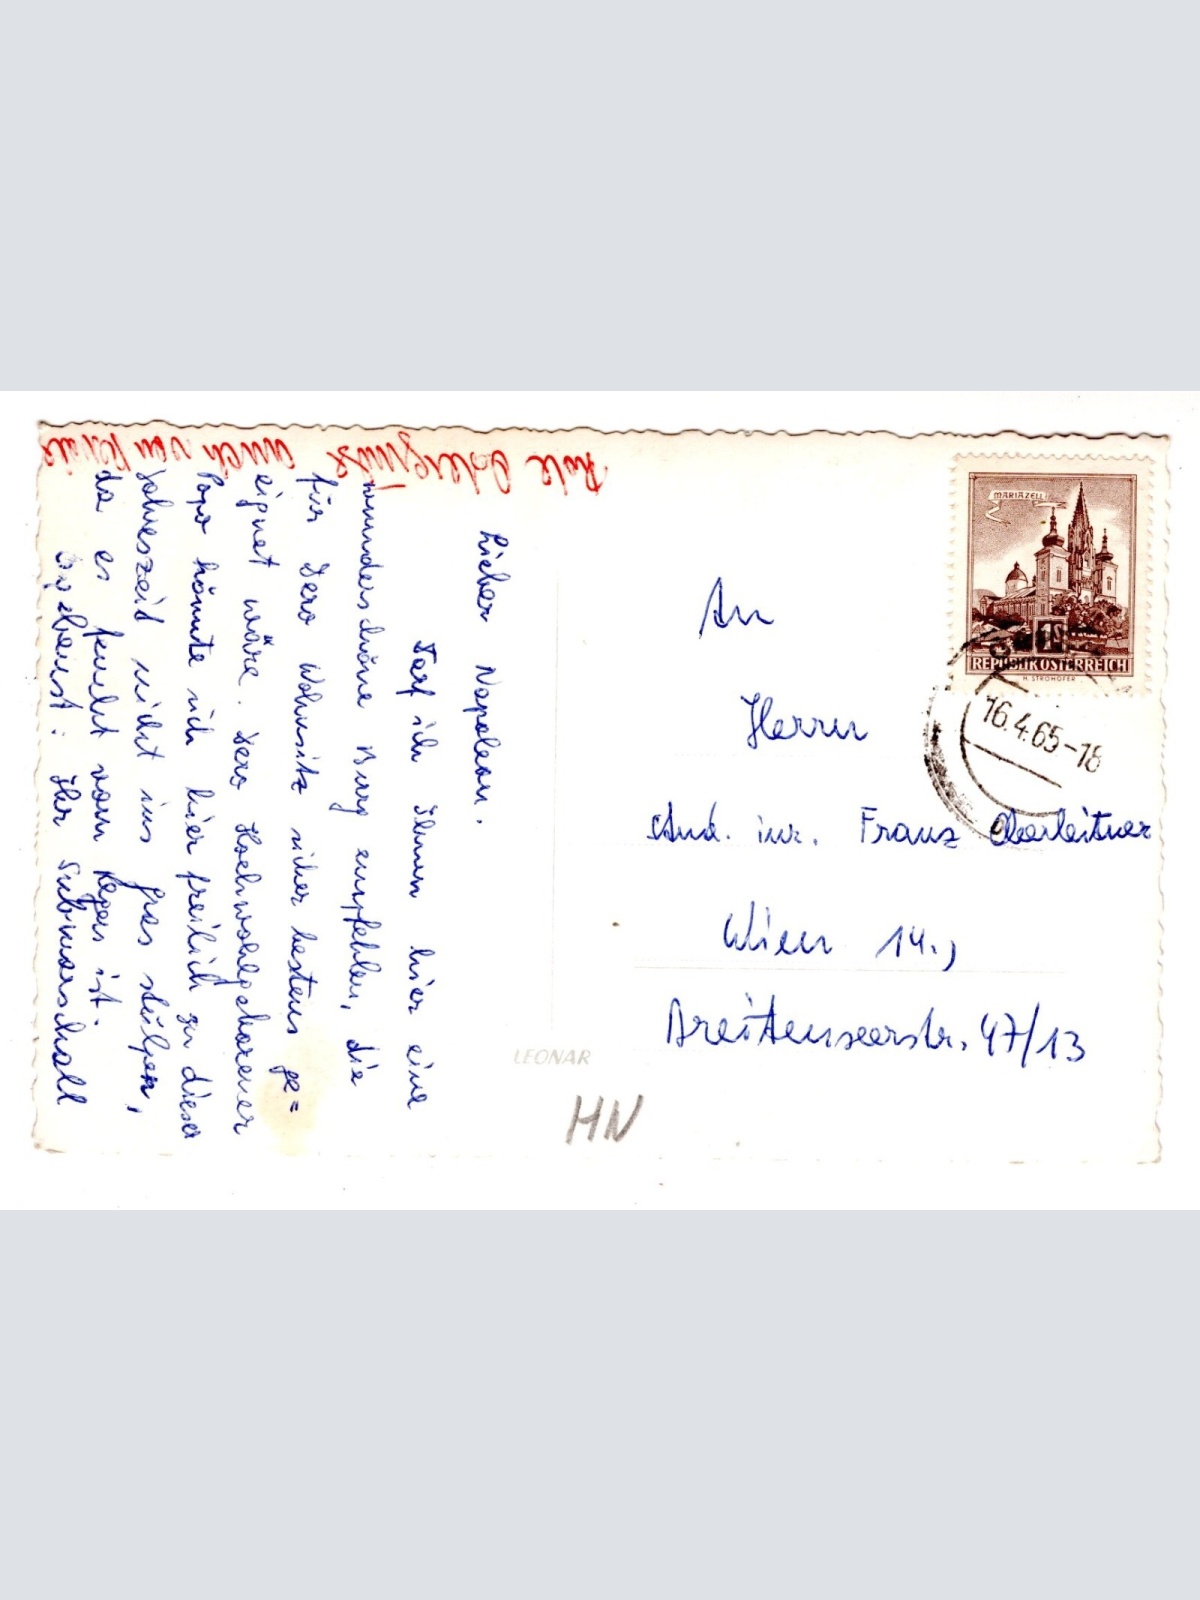 Rote Ostergrüsse auch von
Lieber Napoleon.
Darf ich Ihnen hier eine
wunderschöne Burg empfehlen, die
für Dero Wohnsitz sicher bestens ge=
eignet wäre. Dero Hochwohlgeborener
Popo könnte sich hier freilich zu dieser
Jahreszeit nicht ins Gras stülpen,
da es feucht vom Regen ist.
Ergebenst: Ihr Submarschall
An
Herrn
Franz Oberleitner
Wien 14.,
Breitenseerstr. 47/13
MARIAZELL
10
REPUBLIK ÖSTERREICH
H. STROHOFER
16.4.65-18
LEONAR
HN